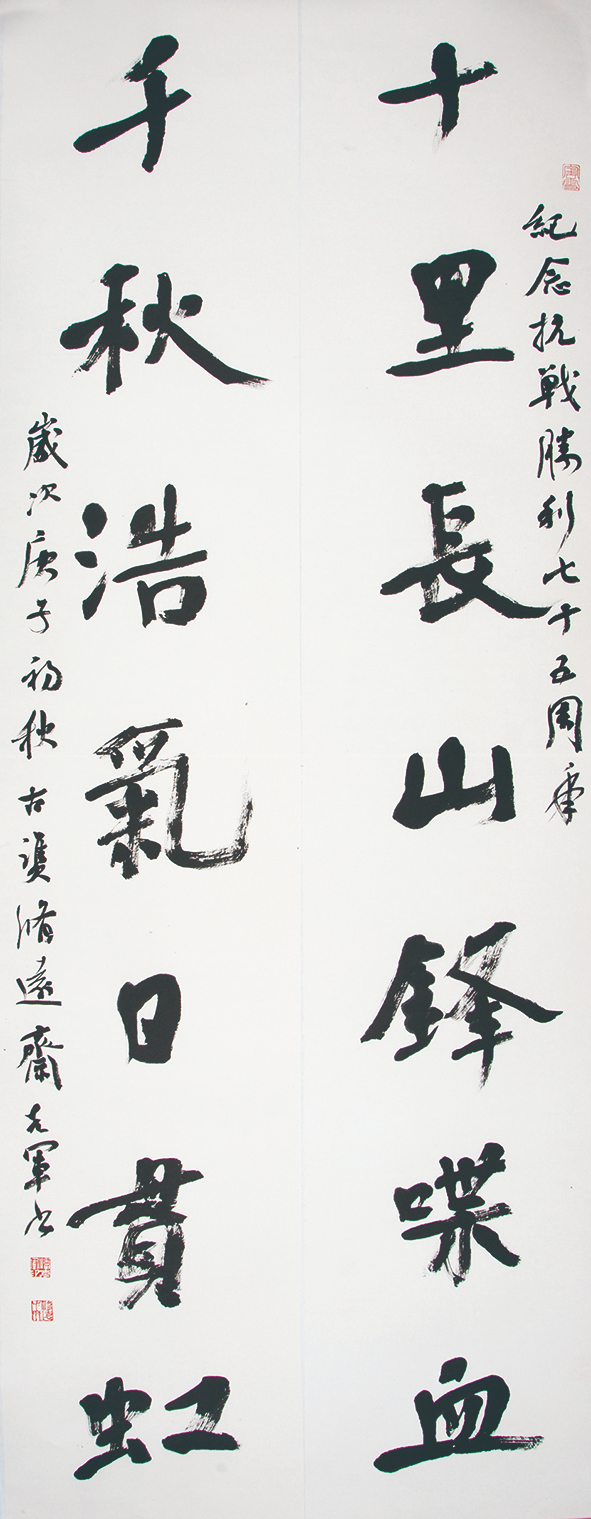 紀念抗戰勝利七十五周年
十里長山鋒喋血
千秋浩氣日貫虹
歲次庚子初秋古雙脩遠齋克軍书